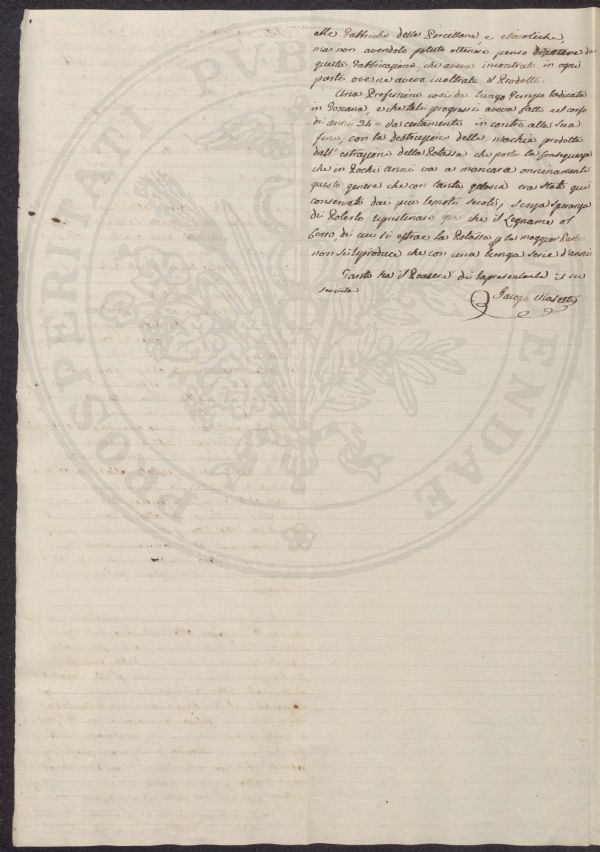 alle Fabbriche delle Porcellane, e Maioliche,
ma non avendolo potuto ottenere penso da
questa Fabbricazione, che aveva incontrato in ogni
parte ove ne aveva inoltrati i Prodotti.
Una Professione così da lungo tempo radicata
in Toscana, e che tali progressi aveva fatti nel corso
di anni 24 = va certamente in contro alla sua
fine, con la distruzione delle macchie prodotta
dall'estrazione della Potassa che porta la conseguenza
che in Pochi Anni va a mancare onninamente
questo genere che con tanta gelosia era stato qui
conservato dai più remoti secoli, senza speranza
di Poterlo ripristinare che il Legname
Cerro, di cui si estrae la Potassa p la maggior Parte
non si riproduce che con una lunga serie d'anni
Tanto ha il Piacere di rapresentarle il su
servitore
Jacopo Masetti
PROSPERITATI PUBLICAE AUGENDAE